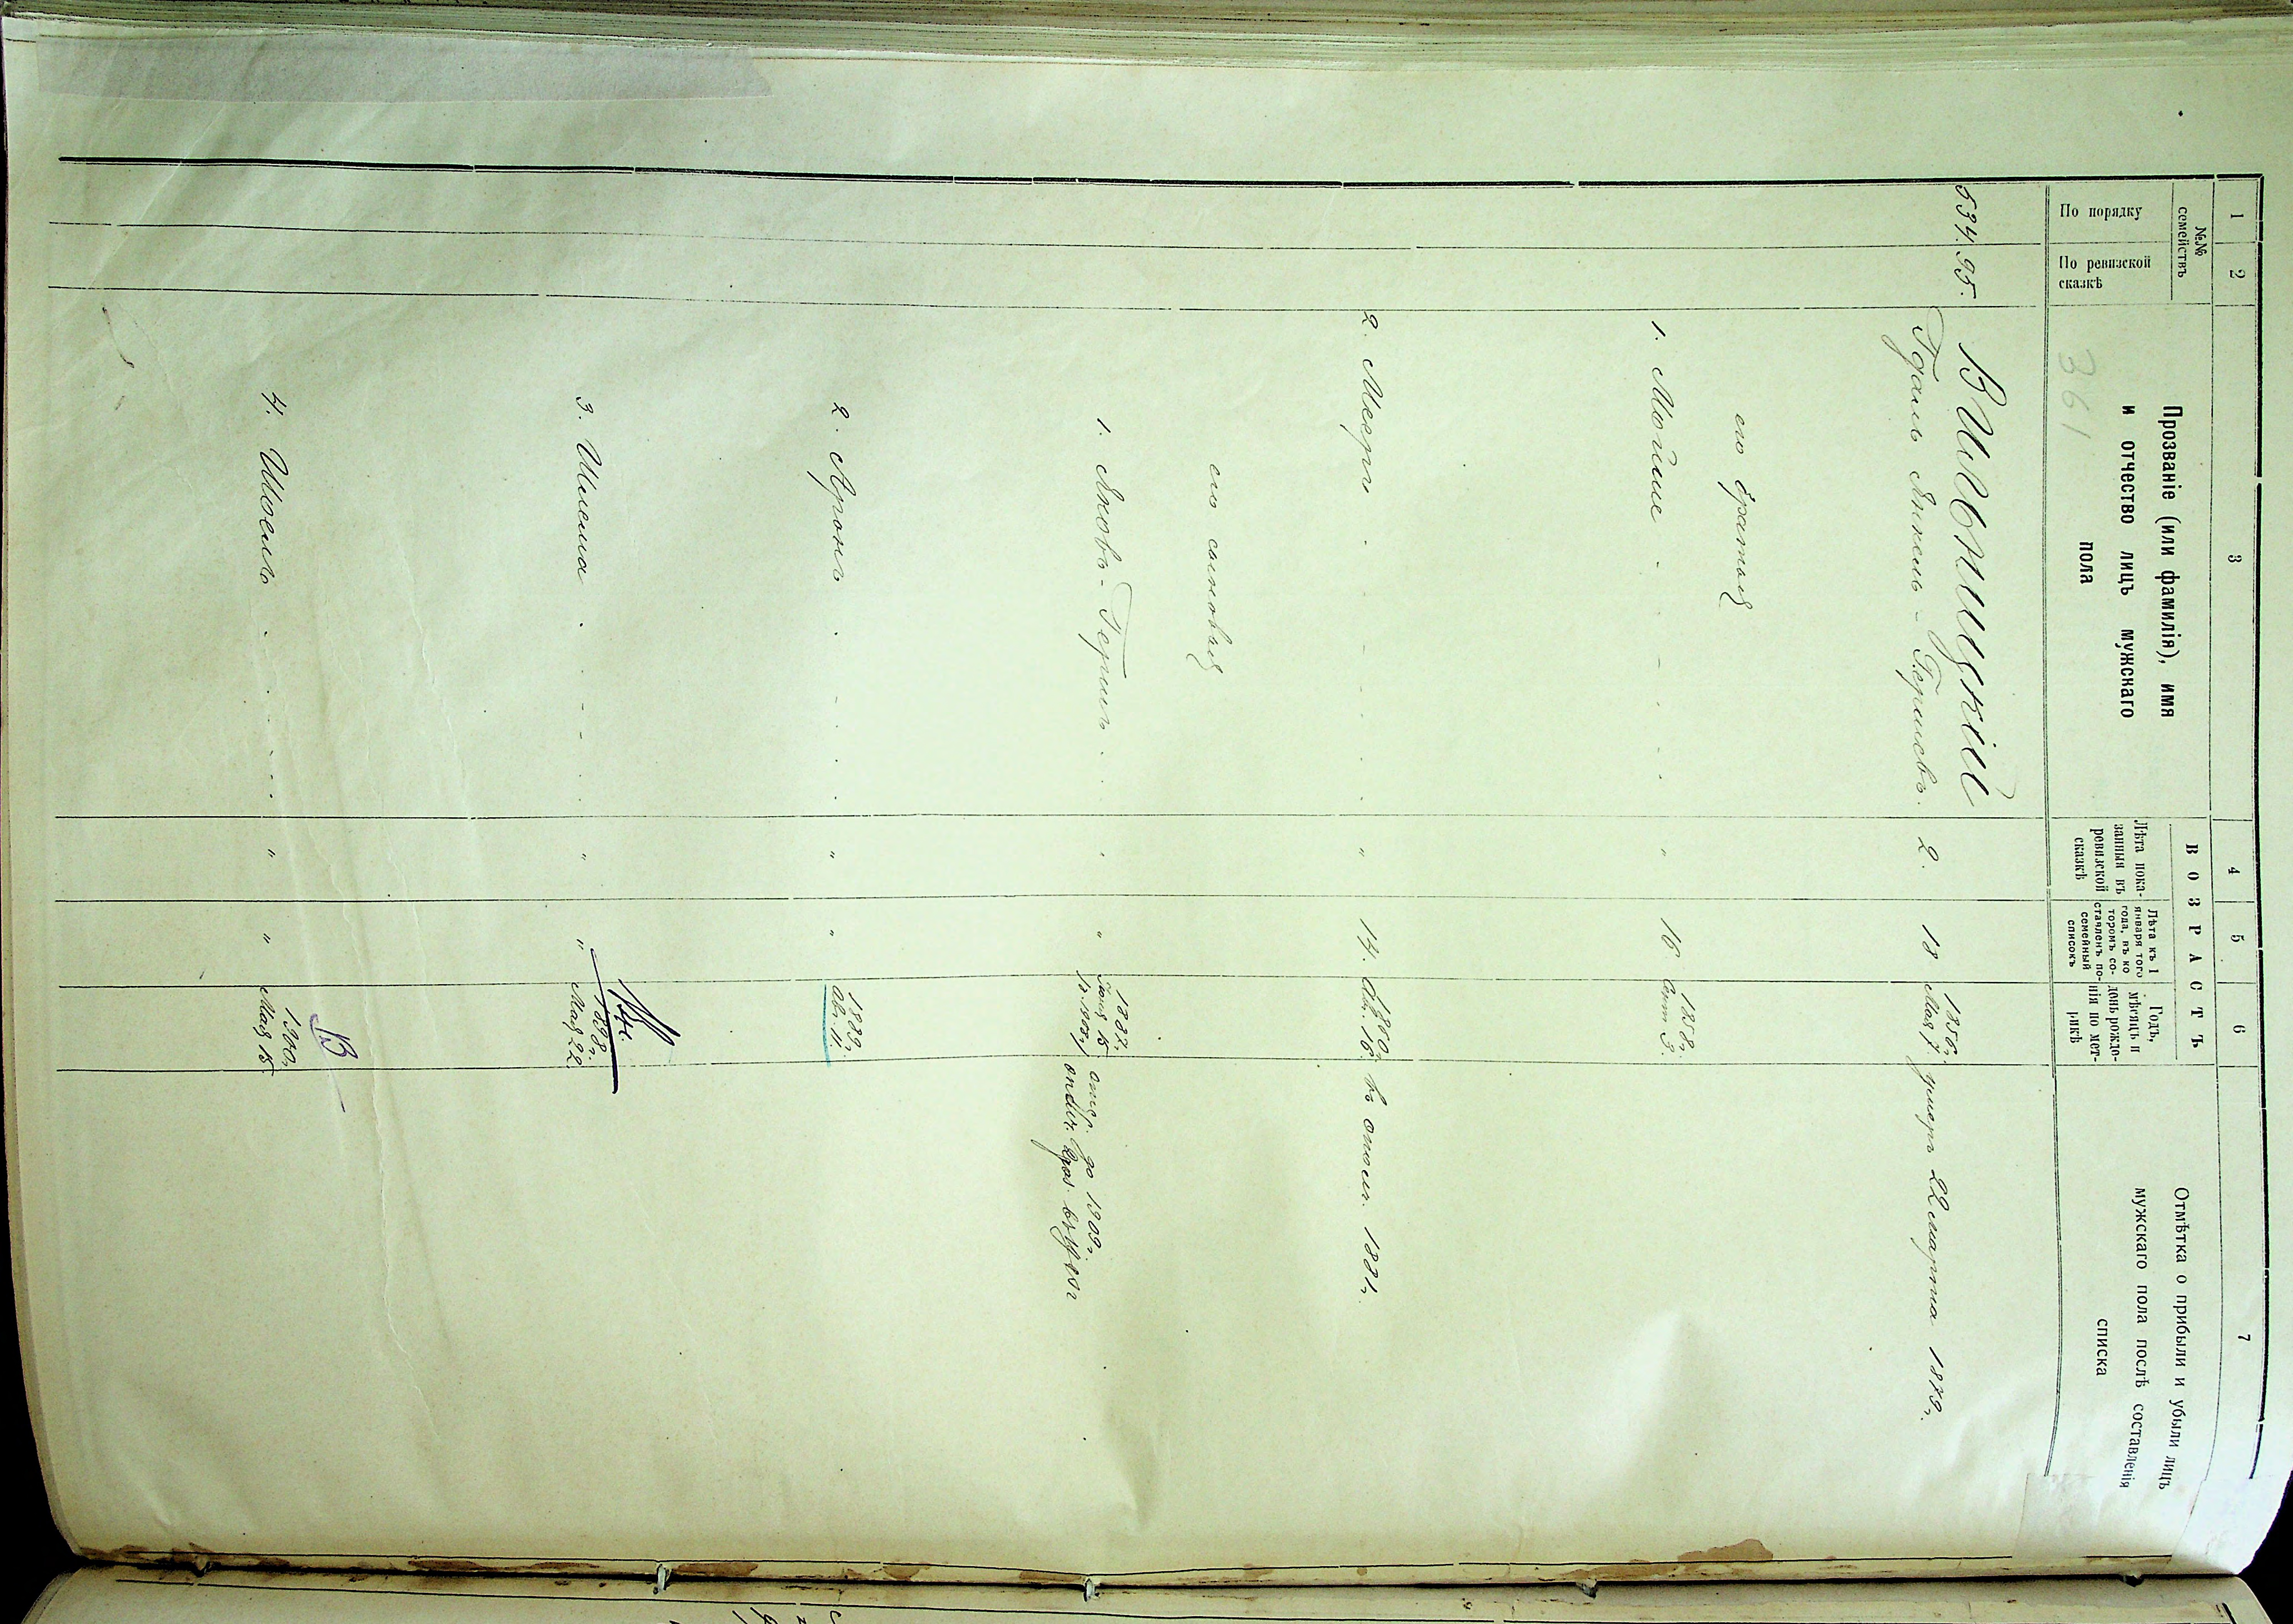 1 2 3 4 5 6 7
№№ семействъ
По порядку
По ревизской сказкѣ
Прозваніе (или фамилія), имя
и отчество лицъ мужскаго
пола
361
ВОЗРАСТЪ
Лѣта пока-
занныя въ
ревизской
сказкѣ
Лѣта къ 1
января того
года, въ ко
торомъ со-
ставленъ по-
семейный
списокъ
Годъ,
мѣсяцъ и
день рожде-
нія по мет-
рикѣ
Отмѣтка о прибыли и убыли лицъ
мужскаго пола послѣ составленія
списка
534. 95. Вишницкій
Гдаль Янкель-Гершовъ. 2. 18 1856 г. Мая 7. умеръ 22 марта 1879 г.
его братья
1. Мойше " 16 1858 г. Сент 3.
2. Мееръ " 14. 1860 г. 16. 1881 г.
его сыновья
1. Яковъ-Гершъ " " 1887 г. 15 отср. до 1909 г.
2. Аронъ " " 1889 г. Авг. 11.
3. Шлема " " 1898 г. Мая 22
4. Шоель " " 1900 г. Мая 15
В